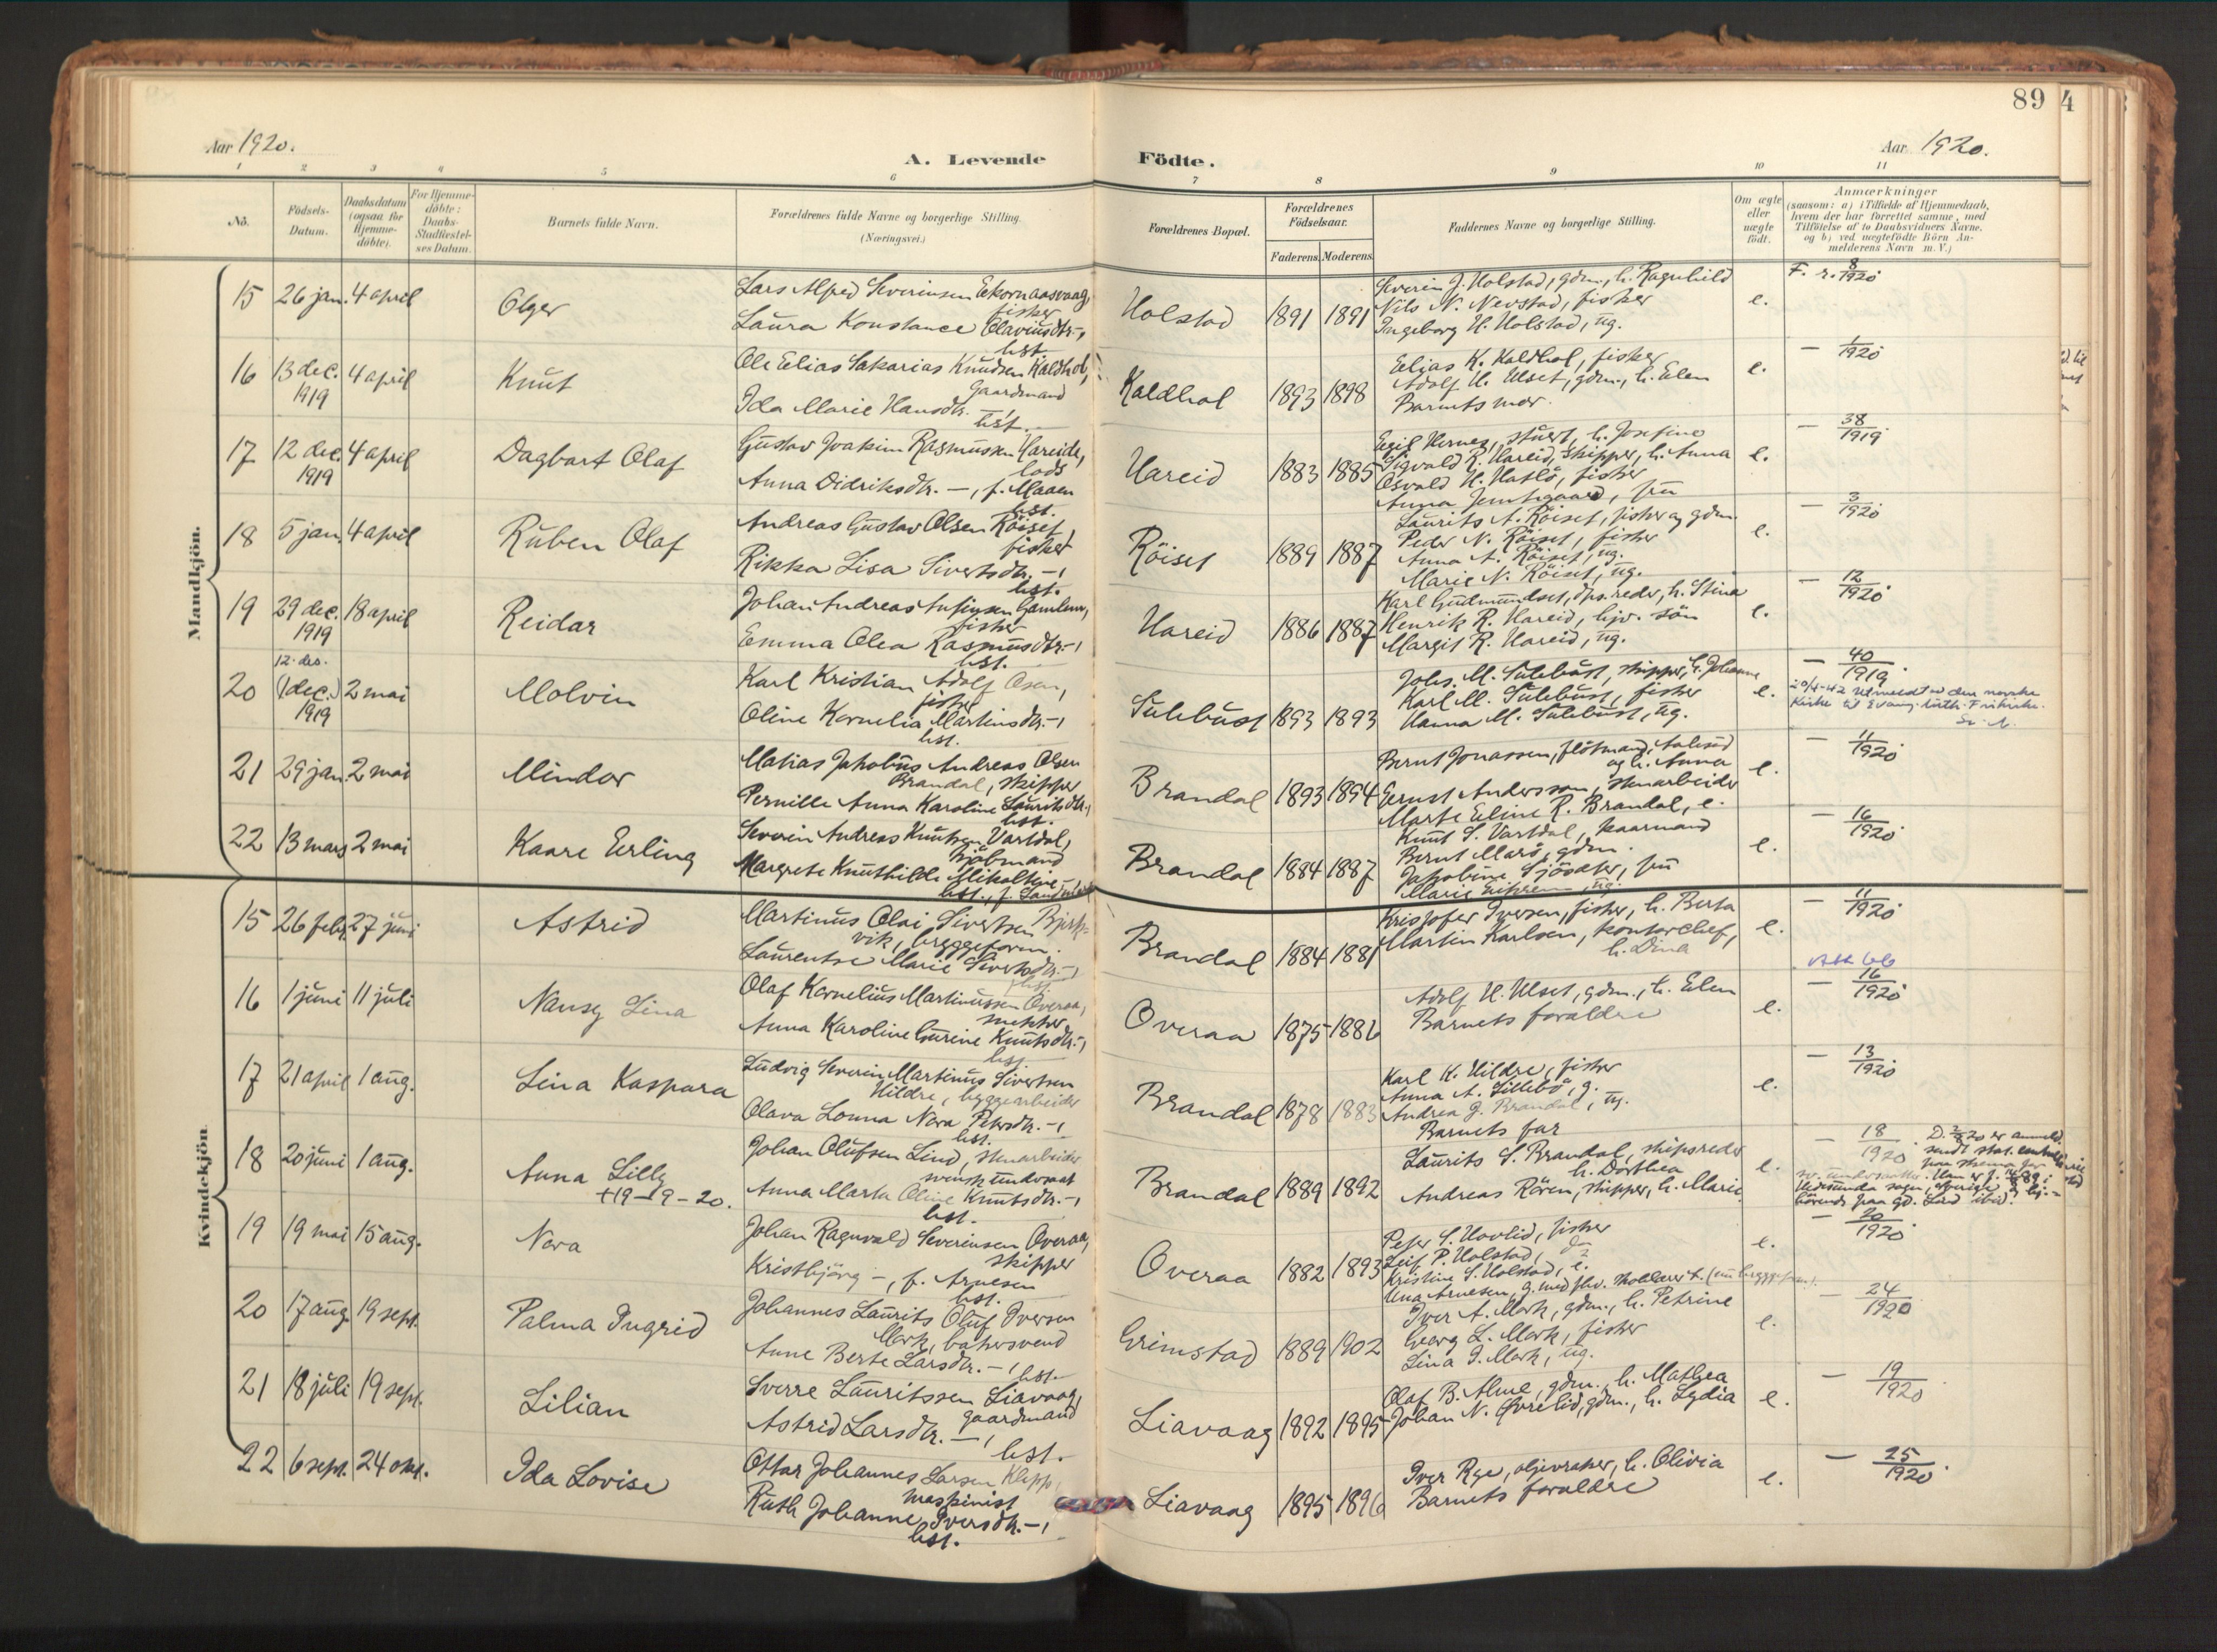 89 4
Aar 1920.
A. Levende Födte.
Aar 1920.
1 2 3 4 5 6 7 8 9 10 11
No.
Födsels-Datum.
Daabsdatum (ogsaa for Hjemmedöbte).
For Hjemmedöbte: Daabs-Stadfæstelses Datum.
Barnets fulde Navn.
Forældrenes fulde Navne og borgerlige Stilling.
(Næringsvei.)
Forældrenes Bopæl.
Forældrenes Födselsaar.
Faderens. Moderens.
Faddernes Navne og borgerlige Stilling.
Om ægte eller uægte födt.
Anmærkninger
(saasom: a) i Tilfælde af Hjemmedaab, hvem der har forrettet samme, med Tilföielse af to Daabsvidners Navne, og b) ved uægtefödte Börn Anmelderens Navn m. V.)
Mandkjön.
15 26 jan. 4 april Olger
Lars Alfred Severinsen Eekornaasvaag,
fisker
Laura Konstance Olaviusdtr. -,
hst.
Holstad 1891 1891
Severin J. Holstad, gdm., h. Ragnhild
Nils N. Nevstad, fisker
Ingeborg H. Holstad, ug.
e. F. r. 8/1920.
16 13 dec. 1919 4 april Knut
Ole Elias Sakarias Knudsen Kaldhol,
Gaardmand
Ida Marie Hansdtr. -,
hst.
Kaldhol 1893 1898
Elias K. Kaldhol, fisker
Adolf H. Ulset, gdm., h. Elen
Barnets mor.
e. - 1/1920
17 12 dec. 1919 4 april Dagbart Olaf
Gustav Joakim Rasmussen Hareide,
lods
Anna Didriksdtr. -, f. Maaen
hst.
Hareid 1883 1885
Egil Hernes, stuert, h. Josefine
Sigvald R. Hareid, skipper, h. Anna
Osvald H. Hatlö, fisker
Anna Jemtegaard, fru
e. - 38/1919.
18 5 jan. 4 april Ruben Olaf
Andreas Gustav Olsen Röiset,
fisker
Rikka Lisa Sivertsdtr. -,
hst.
Röiset 1889 1887
Laurits A. Röiset, fisker og gdm.
Peder N. Röiset, fisker
Anna A. Röiset, ug.
Marie N. Röiset, ug.
e. - 3/1920
19 29 dec. 1919 18 april Reidar
Johan Andreas Gamlem,
fisker
Emma Olea Rasmusdtr. -,
hst.
Hareid 1886 1887
Karl Gudmundset, dps.reder, h. Stina
Henrik R. Hareid, hjv. sön
Margit R. Hareid, ug.
e. - 12/1920.
20 12. des. (1 dec.) 1919 2 mai Molvin
Karl Kristian Adolf Osen,
fisker
Oline Kornelia Martinsdtr. -,
hst.
Sulebust 1893 1893
Johs. M. Sulebust, skipper, h. Johanne
Karl M. Sulebust, fisker
Hanna M. Sulebust, ug.
e. - 40/1919.
utmeldt av den norske
Kirke til Evang. luth. Frikirke.
21 29 jan. 2 mai Mindor
Matias Jakobus Andreas Olsen
Brandal, skipper
Pernille Anna Karoline Lauritsdtr.,
hst.
Brandal 1893 1894
Bernt Jonassen, flötmand, Aalesund
og h. Anna
Gernst Anderssen, stenarbeider
Marte Eline R. Brandal, e.
e. - 11/1920.
22 13 mars 2 mai Kaare Erling
Severin Andreas Knutsen Vartdal,
sjömand
Margrete Knuthilde Mikaltine -,
hst.,
Brandal 1884 1887
Knut S. Vartdal, kaarmand
Bernt Marö, gdm.
Jakobine Sjövater, fru
Marie ug.
e. - 16/1920.
Kvindekjön.
15 26 febr. 27 juni Astrid
Martinus Olai Sivertsen Björk-
vik, bryggeform.
Laurentse Marie Sivertsdtr. -,
hst.
Brandal 1884 1881
Kristofer Iversen, fisker, h. Berta
Martin Karlsen, kontorchef,
h. Dina
e. - 11/1920
16 1 juni 11 juli Nansy Lina
Olaf Kornelius Martinussen Overaa,
snekker
Anna Karoline Gurine Knutsdtr. -,
hst.
Overaa 1875 1886
Adolf H. Ulset, gdm., h. Elen
Barnets foraldre
e. - 16/1920.
17 21 april 1 aug. Lina Kaspara
Ludvig Severin Martinus Sivertsen
Hildre, byggearbeider
Olava Lonna Nora Petersdtr. -,
hst.
Brandal 1878 1883
Karl K. Hildre, fisker
Anna A. Lillebö, g.
Andrea G. Brandal, ug.
Barnets far
e. - 13/1920.
18 20 juni 1 aug. Anna Lilly
+ 19-9-20.
Johan Olufsen Lind, stenarbeider
svensk undersaat
Anna Marta Oline Knutsdtr. -,
hst.
Brandal 1889 1892
Laurits S. Brandal, skipsreder
h. Dorthea
Andreas Rören, skipper, h. Marie
e. - 18/1920.
19 19 mai 15 aug. Nora
Johan Ragnvald Severinsen Overaa,
skipper
Kristbjörg -, f. Arnesen
hst.
Overaa 1882 1893
Peter S. Hovlid, fisker
Leif P. Holstad,
Kristine S. Holstad, e.
Una Arnesen, g. med
e. - 20/1920.
20 17 aug. 19 sept. Palma Ingrid
Johannes Laurits Oluf Iversen
Mork, bakersvend
Anne Berte Larsdtr. -,
hst.
Grimstad 1889 1902
Iver A. Mork, gdm., h. Petrine
Georg L. Mork, fisker
Lina I. Mork, ug.
e. - 24/1920
21 18 juli 19 sept. Lilian
Sverre Lauritssen Liavaag,
gaardmand
Astrid Larsdtr. -,
hst.
Liavaag 1892 1895
Olaf B. Alme, gdm., h. Mathea
Johan N. Øvrelid, gdm., h. Lydia
e. - 19/1920
22 6 sept. 24 okt. Ida Lovise
Ottar Johannes Larsen Klepp,
maskinist
Ruth Johanne Iversdtr. -,
hst.
Liavaag 1895 1896
Iver Rye, oljevraker, h. Olivia
Barnets foraldre
e. - 25/1920.